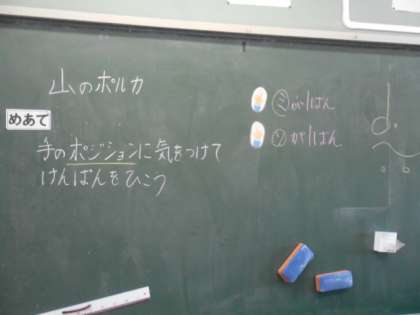 山のポルカ
めあて
手のポジションに気をつけて
けんばんをひこう
ミが1ばん
ソが1ばん